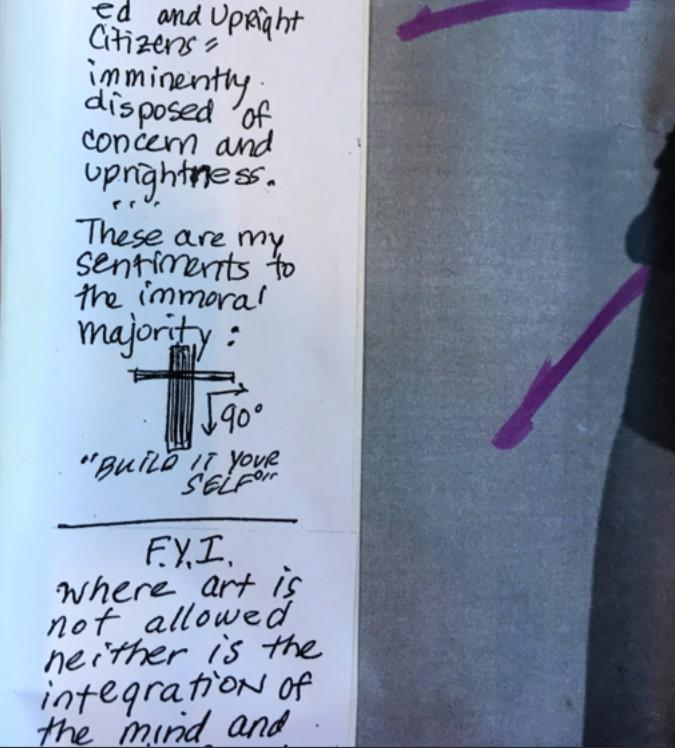 ed and Upright
Citizens =
imminently
disposed of
concern and
uprightness.
....
These are my
sentiments to
the immoral
majority:
90°
"BUILD IT YOUR
SELF"
F.Y.I.
where art is
not allowed
neither is the
integration of
the mind and